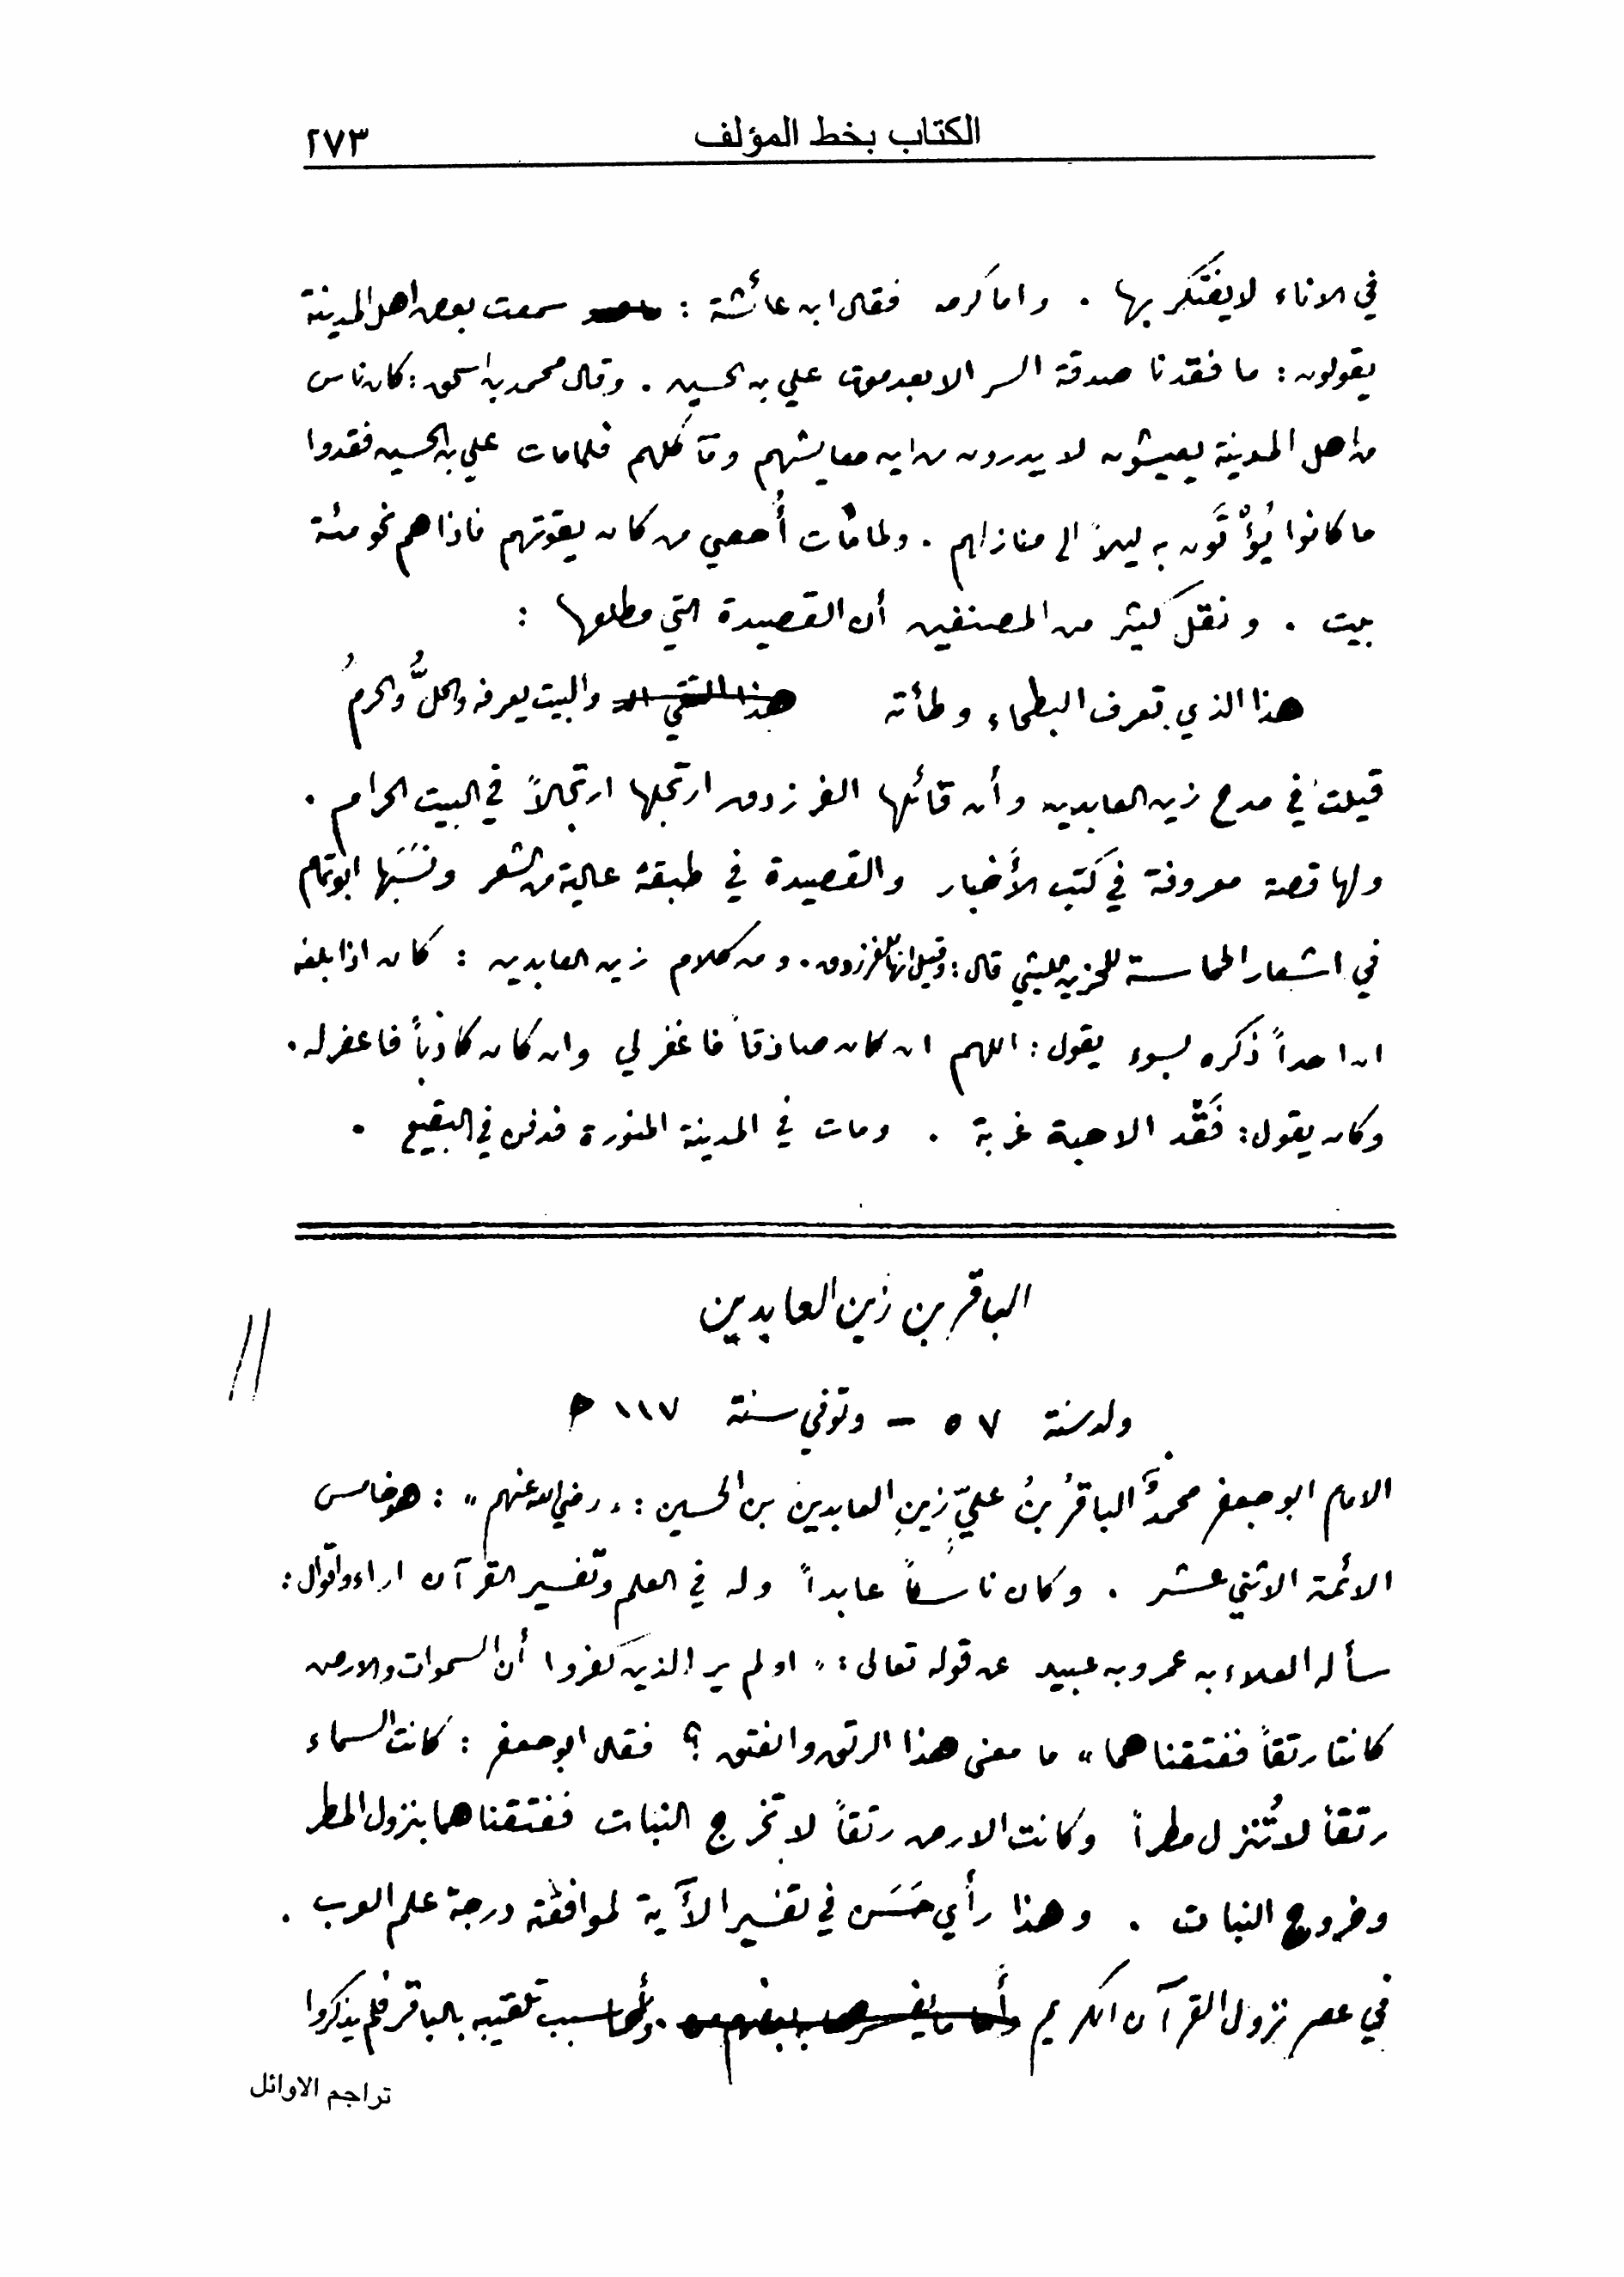 الكتاب بخط المؤلف ٢٧٣
في الاناء لا يفتكر بها . واما كرمه فقال ابن عائشة : سمعت بعض اهل المدينة
يقولون : ما فقدنا صدقة السر الا بعد موت علي بن الحسين . وقال محمد بن اسحق : كان ناس
من اهل المدينة يعيشون لا يدرون من اين معايشهم ومآكلهم فلما مات علي بن الحسين فقدوا
ما كانوا يُؤْتَون به ليلاً الى منازلهم . ولما مات أُحصي من كان يقوتهم فاذا هم نحو مئة
بيت . ونقل كثير من المصنفين أن القصيدة التي مطلعها :
هذا الذي تعرف البطحاء وطأته هذا التقي والبيت يعرفه والحلُّ والحرمُ
قيلت في مدح زين العابدين وأن قائلها الفرزدق ارتجلها ارتجالاً في البيت الحرام .
ولها قصة معروفة في كتب الأخبار والقصيدة في طبقة عالية من الشعر ونَسَبَها ابو تمام
في اشعار الحماسة للحزين الليثي قال : وقيل انها للفرزدق . ومن كلام زين العابدين : كان اذا بلغه
ان احداً ذكره بسوء يقول : اللهم ان كان صادقاً فاغفر لي وان كان كاذباً فاغفر له .
وكان يقول : فَقْد الاحبة غربة . ومات في المدينة المنورة فدفن في البقيع .
الباقر بن زين العابدين
ولد سنة ٥٧ – وتوفي سنة ١١٧ ه
الامام ابو جعفر محمدٌ الباقرُ بنُ عليِّ زينِ العابدين بن الحسين : «رضي الله عنهم» : هو خامس
الائمة الاثني عشر . وكان ناسكاً عابداً وله في العلم وتفسير القرآن اراء واقوال :
سأله العلاء بن عمرو بن عبيد عن قوله تعالى : «اولم ير الذين كفروا أن السموات والارض
كانتا رتقاً ففتقناهما» ما معنى هذا الرتق والفتق ؟ فقال ابو جعفر : كانت السماء
رتقاً لا تُنزل مطراً وكانت الارض رتقاً لا تخرج النبات ففتقناهما بنزول المطر
وخروج النبات . وهذا رأي حَسَن في تفسير الآية لموافقته درجة علم العرب .
في عصر نزول القرآن الكريم . وأما سبب تلقيبه بالباقر فلم يذكروا
تراجم الاوائل